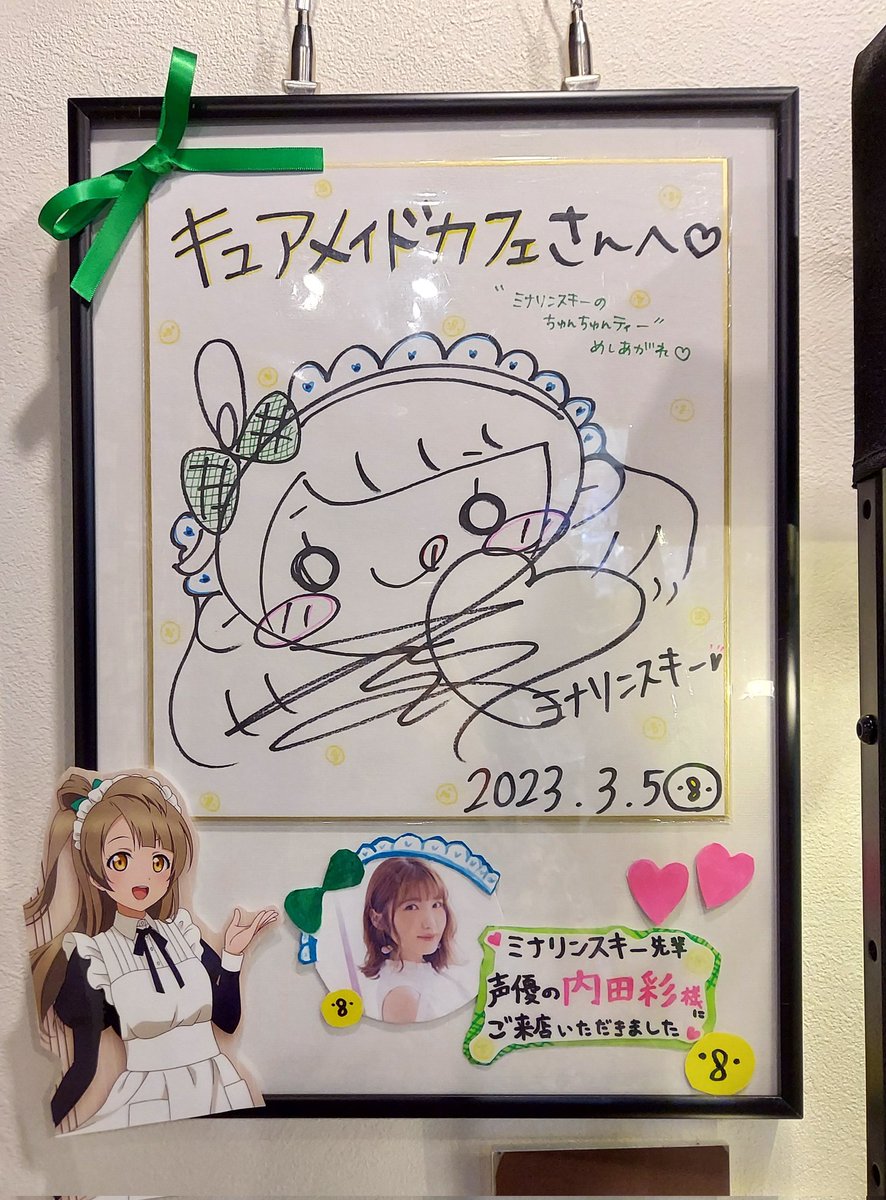 キュアメイドカフェさんへ♡
"ミナリンスキーの
ちゅんちゅんティー"
めしあがれ♡
ミナリンスキー♥
2023.3.5 ・8・
ミナリンスキー先輩
声優の内田彩様に
ご来店いただきました
・8・
・8・